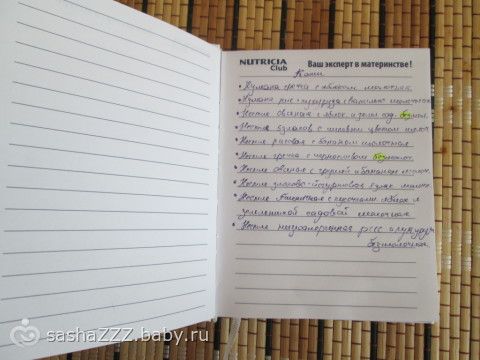 NUTRICIA
Club
Ваш эксперт в материнстве!
Каши
• Хумана гречка с яблоком молочная.
• Хумана рис-кукуруза с ванилью молочная
• Нестле овсяная с яблок и земл сад. безмол.
• Нестле 5злаков с липовым цветом молоч.
• Нестле рисовая с бананом молочная
• Нестле гречка с черносливом безмолоч.
• Нестле овсяная с грушей и бананом молоч.
• Нестле злаково-йогуртовая молоч.
• Нестле пшеничная с персиками яблок и
земляникой садовой молочная
• Нестле рис с
безмолочная.
sashaZZZ.baby.ru